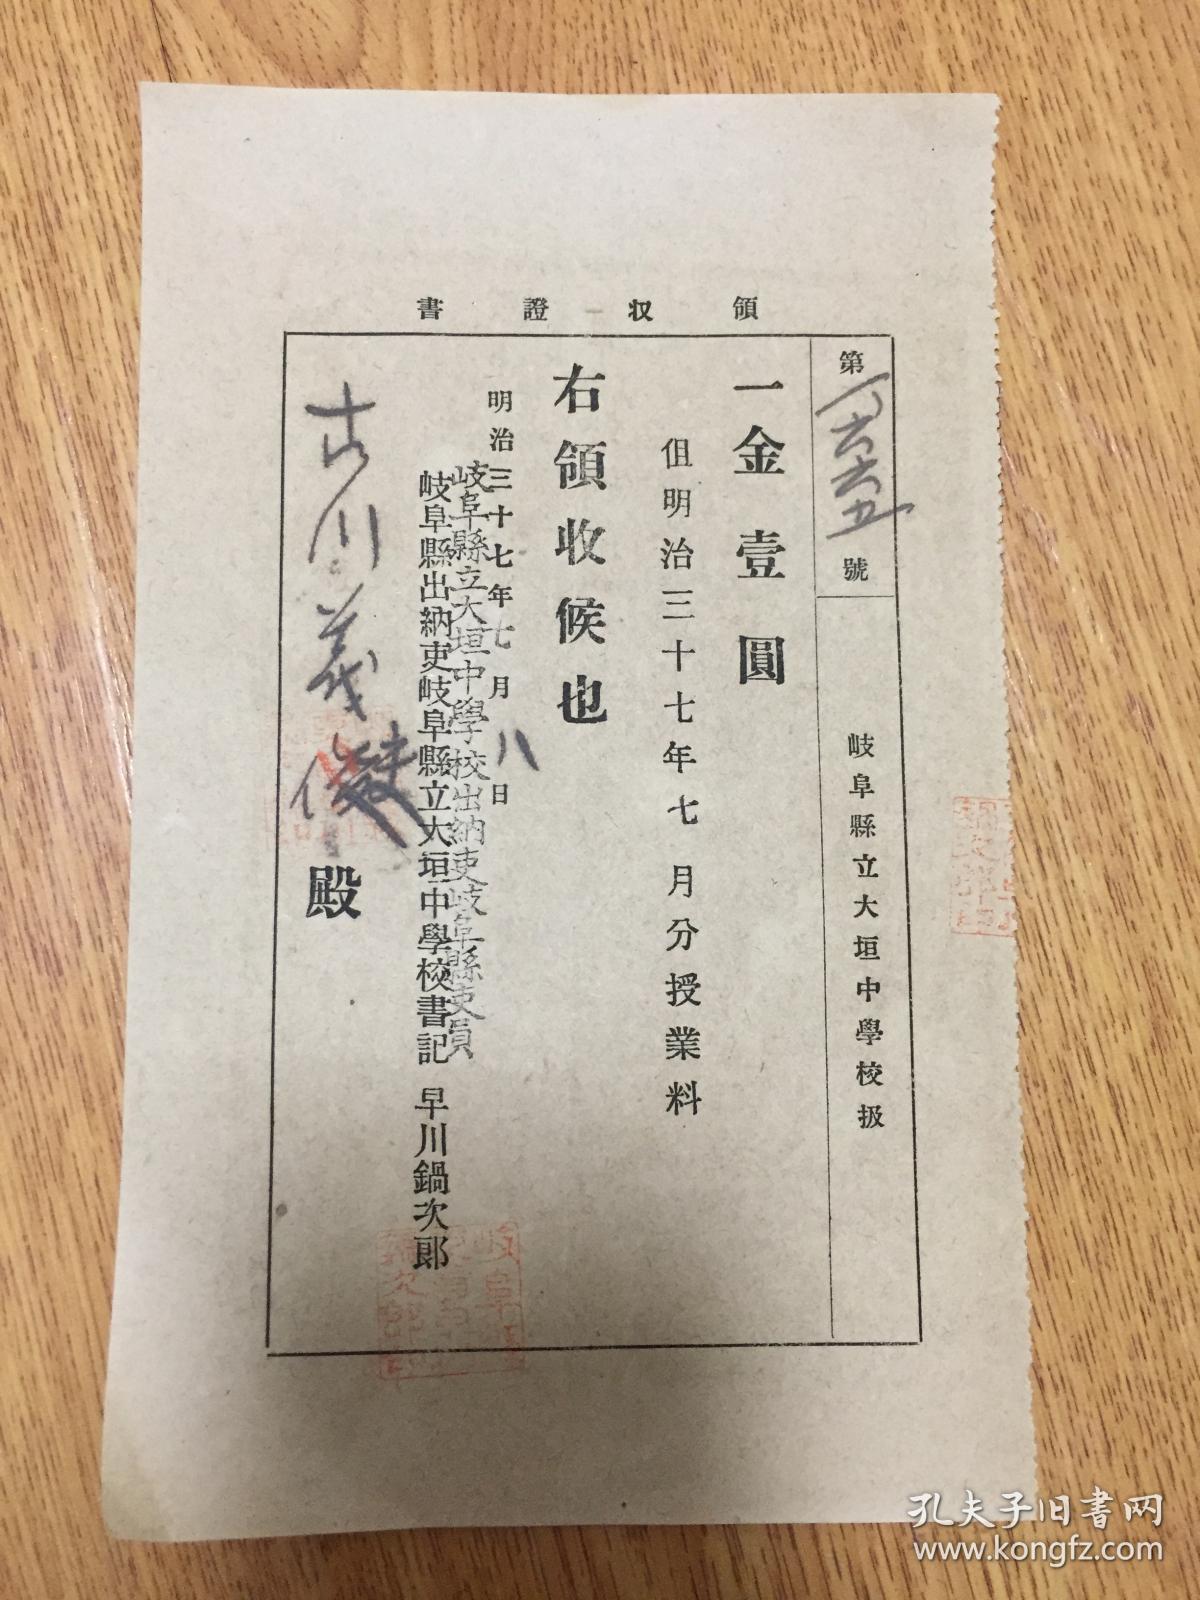 領収證書
第一六六五號
岐阜縣立大垣中學校扱
一金壹圓
但明治三十七年七月分授業料
右領收候也
明治三十七年七月八日
岐阜縣立大垣中學校出納吏岐阜縣吏員
岐阜縣出納吏岐阜縣立大垣中學校書記 早川鍋次郎
古川義雄殿
孔夫子旧书网
www.kongfz.com